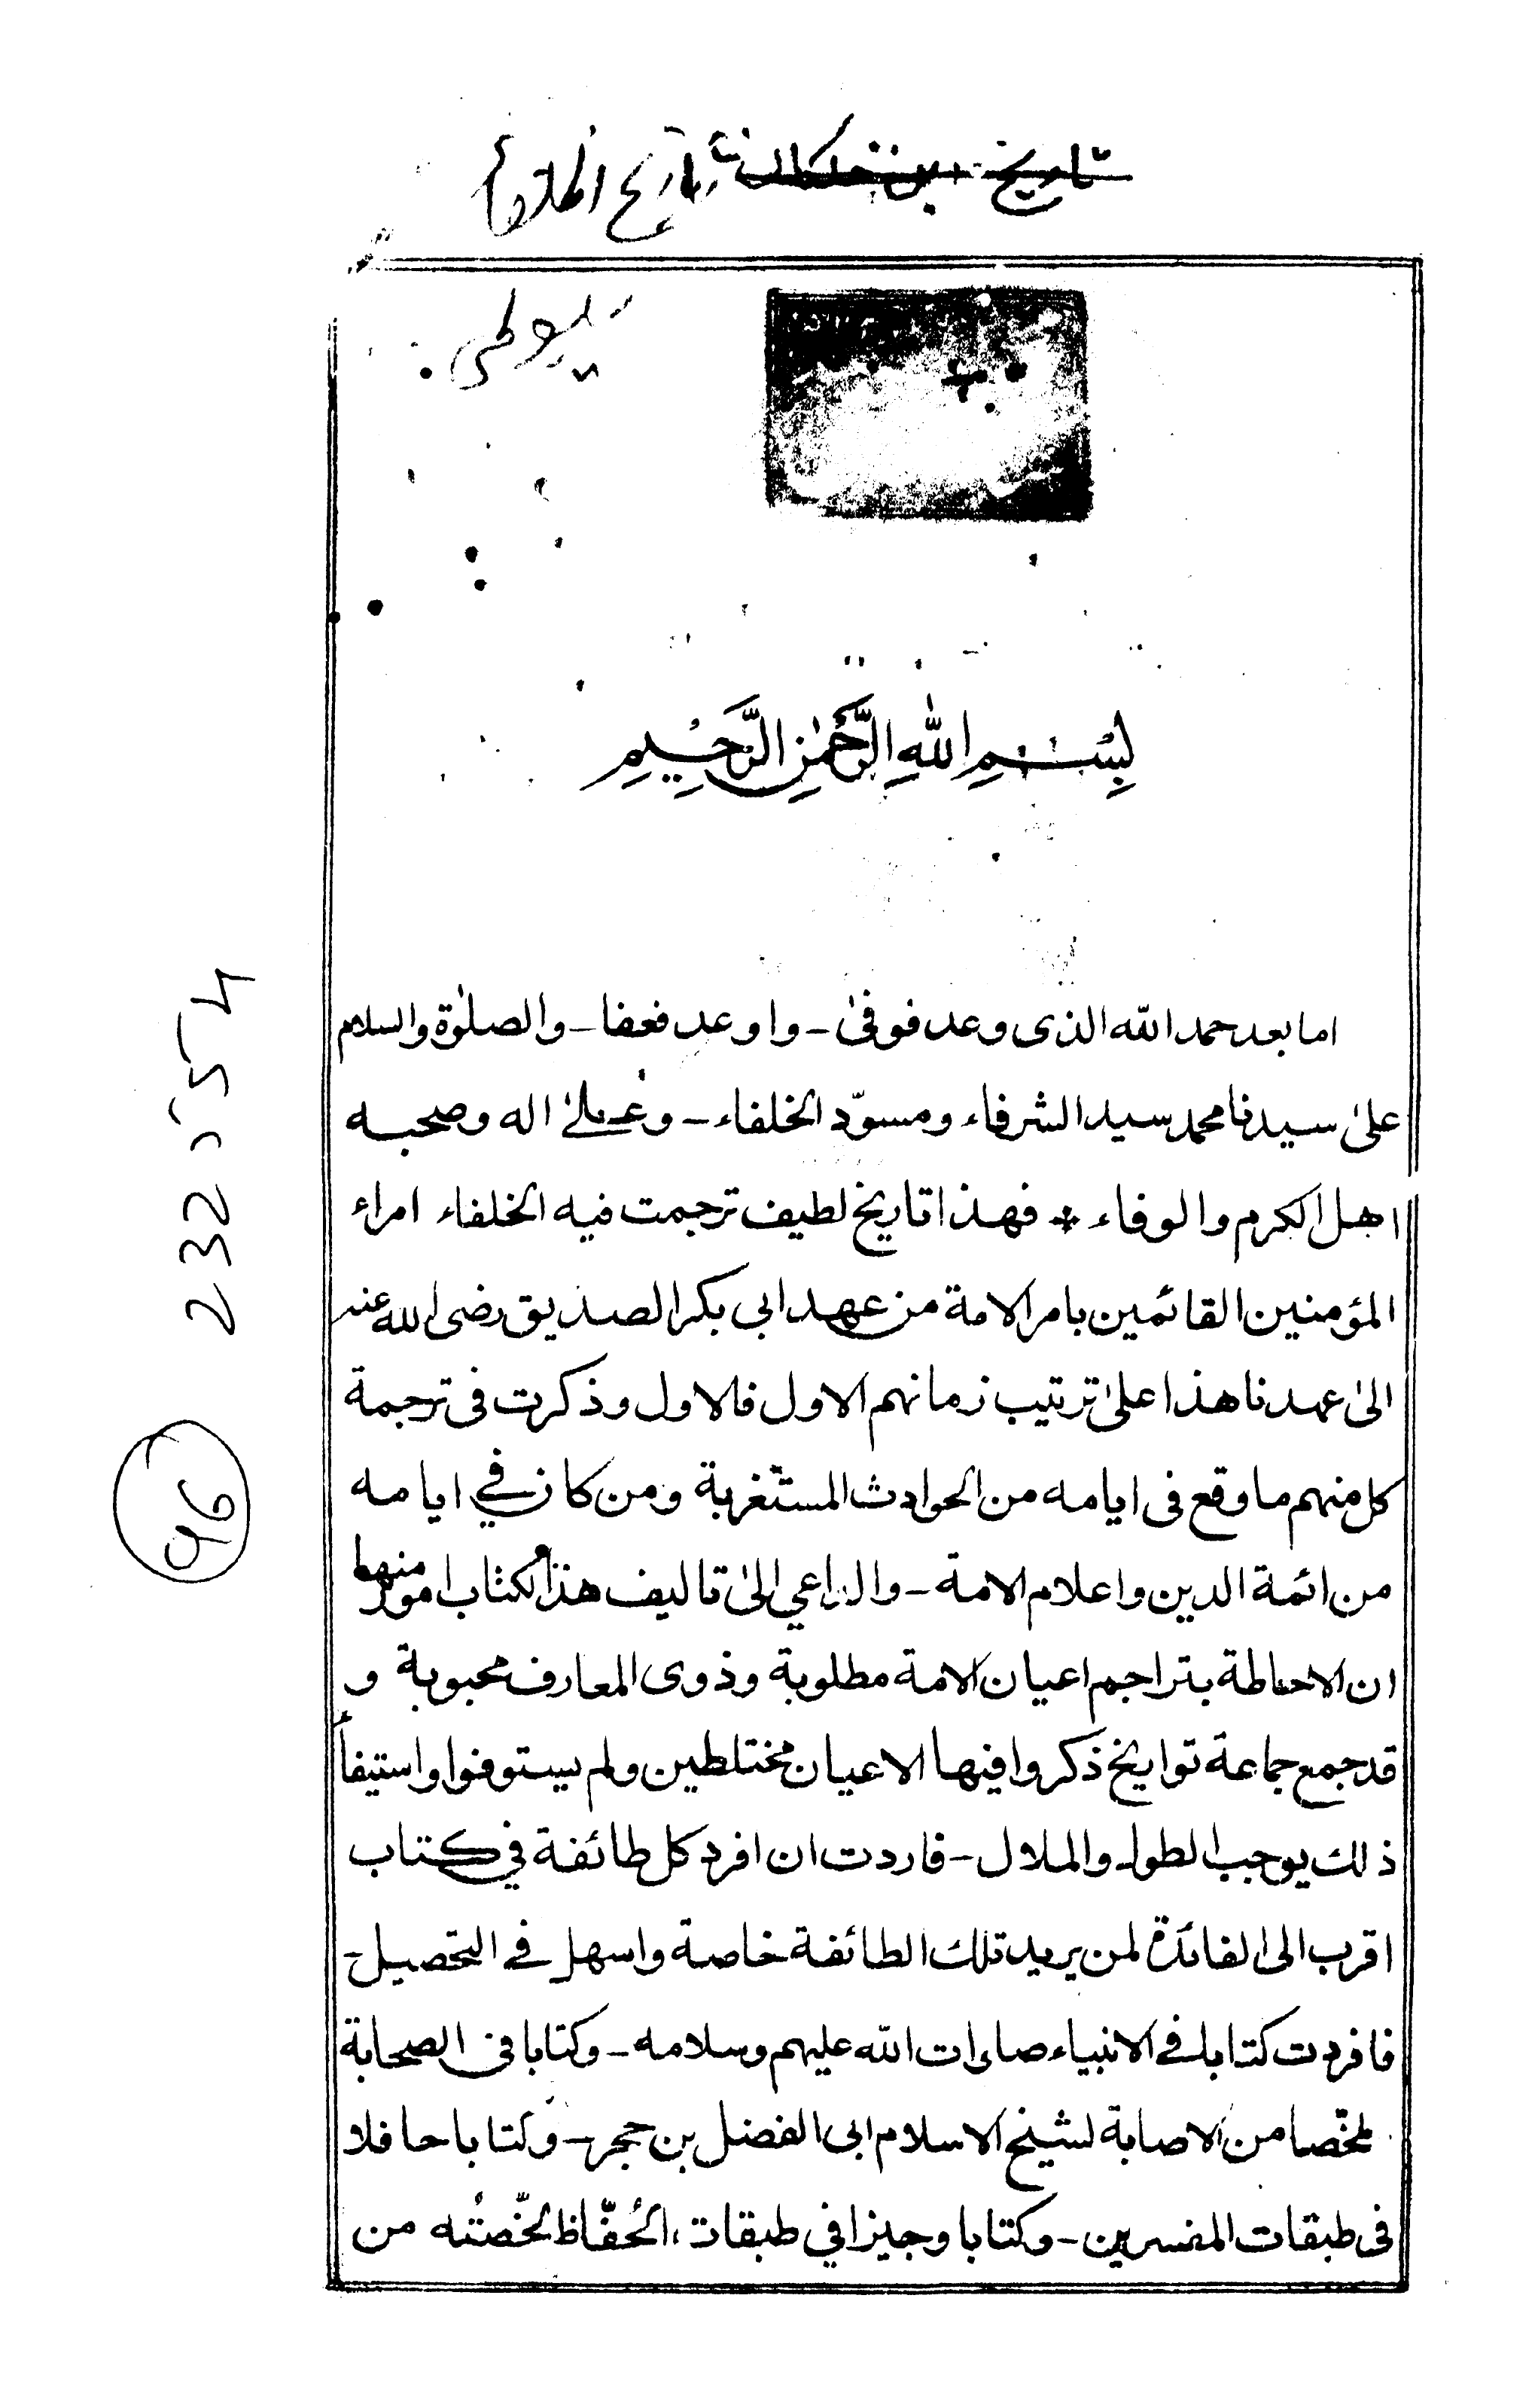 تاريخ ابن خلكان تاريخ الخلفاء
سيوطى
بِسْمِ اللّٰهِ الرَّحْمٰنِ الرَّحِيْمِ
اما بعد حمد اللّٰه الذى وعد فوفىٰ - واوعد فعفا - والصلوٰة والسلام
علىٰ سيدنا محمد سيد الشرفاء ومسوّد الخلفاء - وعلىٰ اله وصحبه
اهل الكرم والوفاء * فهذا تاريخ لطيف ترجمت فيه الخلفاء امراء
المؤمنين القائمين بامر الامة من عهد ابى بكر الصديق رضى الله عنه
الىٰ عهدنا هذا علىٰ ترتيب زمانهم الاول فالاول وذكرت فى ترجمة
كل منهم ما وقع فى ايامه من الحوادث المستغربة ومن كان في ايامه
من ائمة الدين واعلام الامة - والداعي الىٰ تاليف هذا الكتاب امور منها
ان الاحاطة بتراجم اعيان الامة مطلوبة وذوى المعارف محبوبة و
قد جمع جماعة تواريخ ذكروا فيها الاعيان مختلطين ولم يستوفوا واستيفأ
ذلك يوجب الطول والملال - فاردت ان افرد كل طائفة في كتاب
اقرب الى الفائدة لمن يريد تلك الطائفة خاصة واسهل في التحصيل -
فافردت كتابا في الانبياء صلوات اللّٰه عليهم وسلامه - وكتابا فى الصحابة
ملخّصا من الاصابة لشيخ الاسلام ابى الفضل بن حجر - وكتابا حافلا
فى طبقات المفسرين - وكتابا وجيزا في طبقات الحُفّاظ لخّصتُه من
232054
96